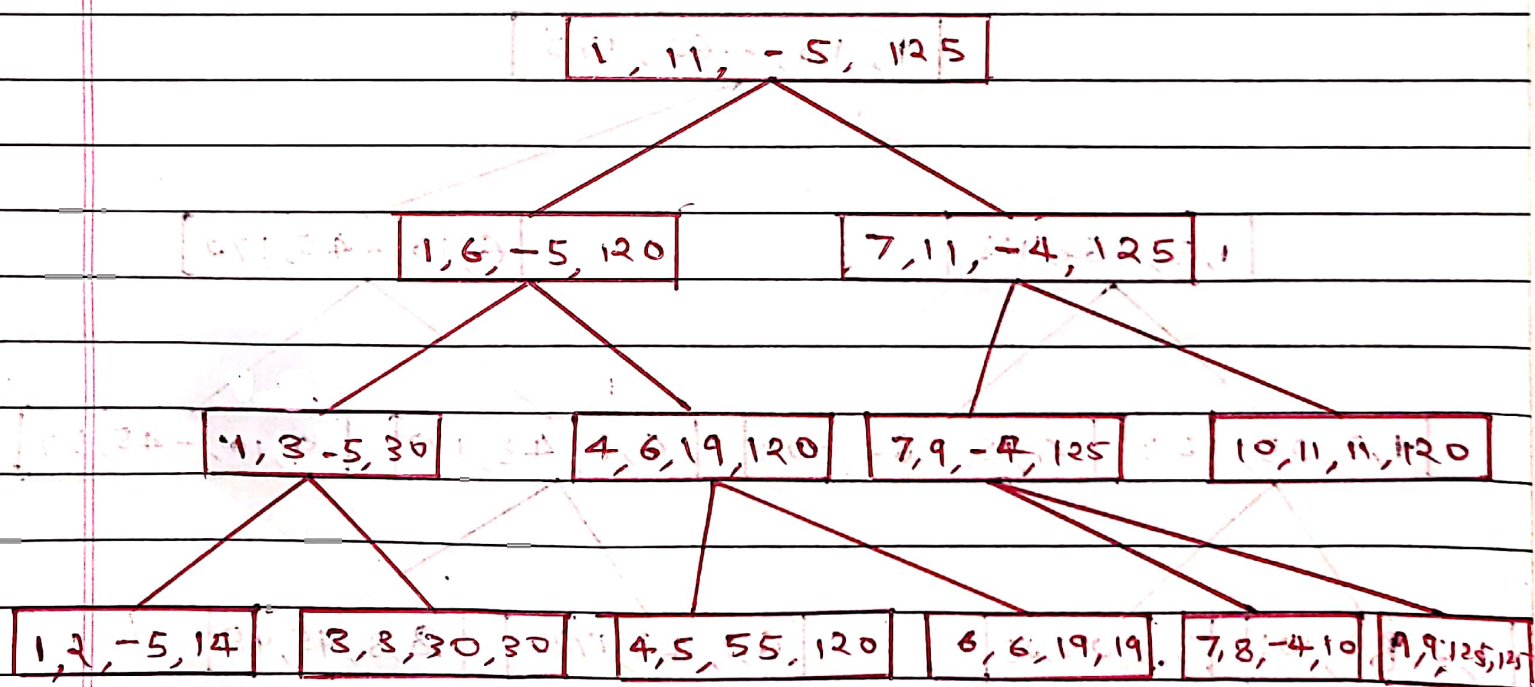 1, 11, -5, 125
1,6,-5,120 7,11,-4,125
1,3-5,30 4,6,19,120 7,9,-4,125 10,11,11,120
1,2,-5,14 3,3,30,30 4,5,55,120 6,6,19,19. 7,8,-4,10 9,9,125,125